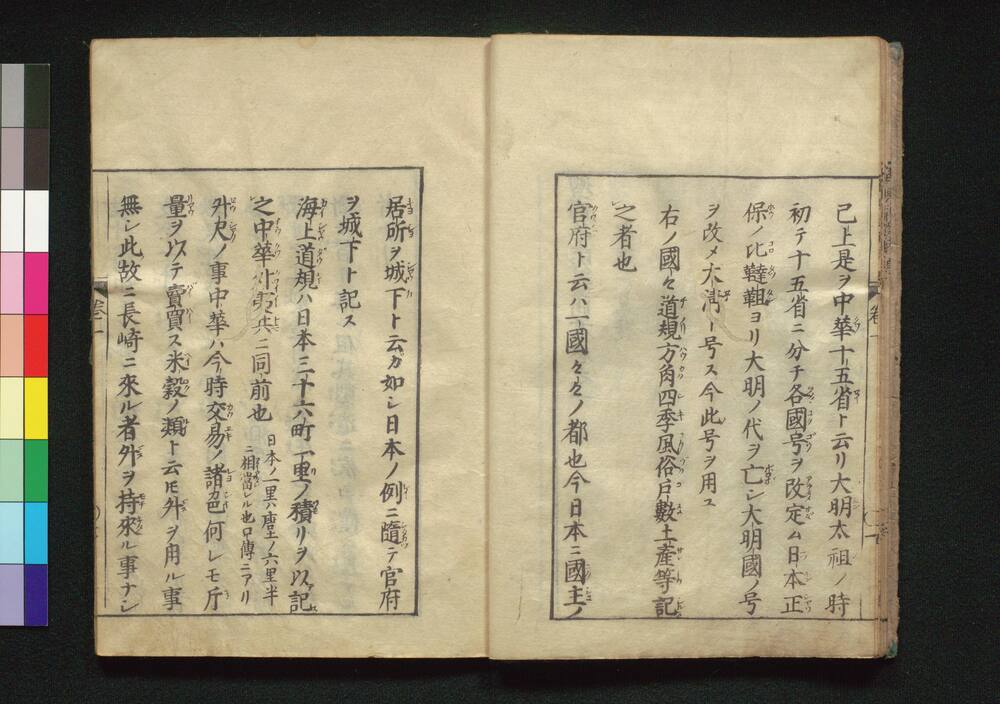 已上是ヲ中華十五省ト云リ大明太祖ノ時
初テ十五省ニ分チ各國号ヲ改定ム日本正
保ノ比韃靼ヨリ大明ノ代ヲ亡シ大明國ノ号
ヲ改メ大清ト号ス今此号ヲ用ユ
右ノ國々道規方角四季風俗戸數土産等記
之者也
官府ト云ハ一國々々ノ都也今日本ニ國主ノ
居所ヲ城下ト云カ如シ日本ノ例ニ隨テ官府
ヲ城下ト記ス
海上道規ハ日本三十六町一里ノ積リヲ以記
之中華外夷共ニ同前也 日本ノ一里ハ唐土ノ六里半
ニ相當レル也口傳ニアリ
升尺ノ事中華ハ今ノ時交易ノ諸色何レモ斤
量ヲ以テ賣買ス米穀ノ類ト云𪜈升ヲ用ル事
無シ此故ニ長崎ニ來ル者升ヲ持來ル事ナシ
卷一
卷一